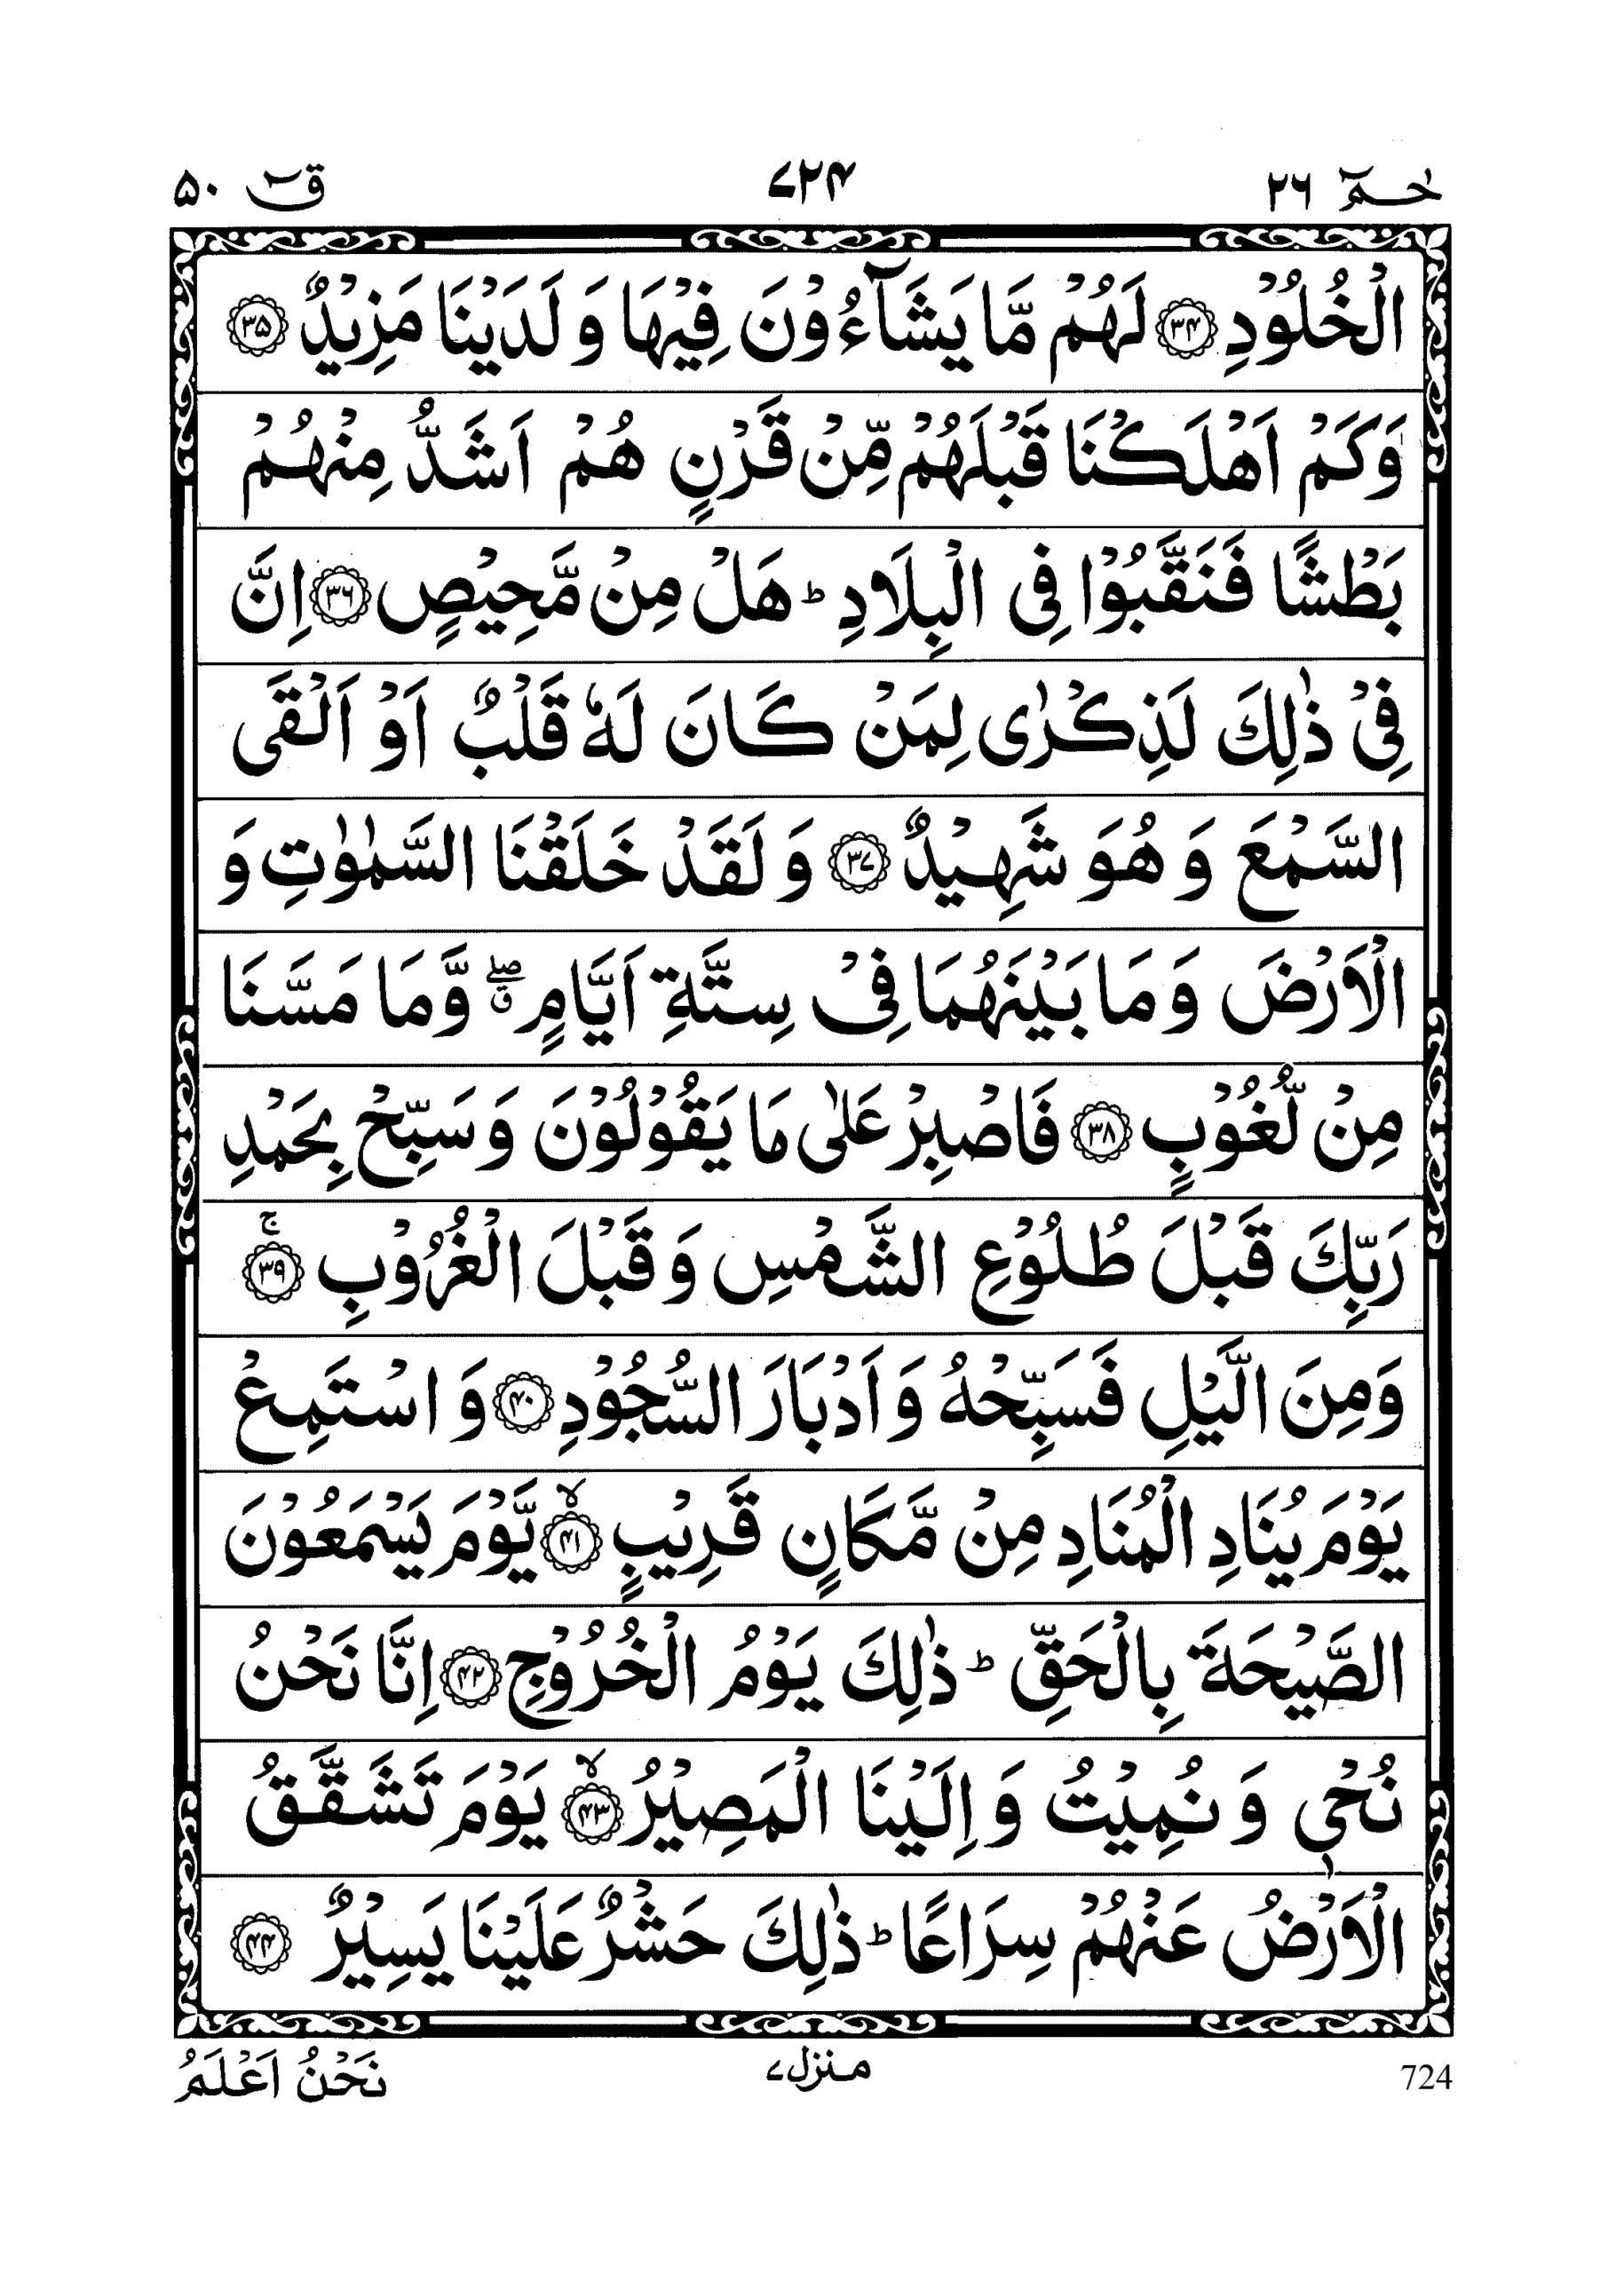 حٰمٓ ٢٦ ٧٢٤ قٓ ٥٠
الْخُلُوْدِ ﴿٣٤﴾ لَهُمْ مَّا يَشَآءُوْنَ فِيْهَا وَ لَدَيْنَا مَزِيْدٌ ﴿٣٥﴾
وَكَمْ اَهْلَكْنَا قَبْلَهُمْ مِّنْ قَرْنٍ هُمْ اَشَدُّ مِنْهُمْ
بَطْشًا فَنَقَّبُوْا فِى الْبِلَادِ ؕ هَلْ مِنْ مَّحِيْصٍ ﴿٣٦﴾ اِنَّ
فِىْ ذٰلِكَ لَذِكْرٰى لِمَنْ كَانَ لَهٗ قَلْبٌ اَوْ اَلْقَى
السَّمْعَ وَ هُوَ شَهِيْدٌ ﴿٣٧﴾ وَ لَقَدْ خَلَقْنَا السَّمٰوٰتِ وَ
الْاَرْضَ وَ مَا بَيْنَهُمَا فِىْ سِتَّةِ اَيَّامٍ ۖق وَّمَا مَسَّنَا
مِنْ لُّغُوْبٍ ﴿٣٨﴾ فَاصْبِرْ عَلٰى مَا يَقُوْلُوْنَ وَ سَبِّحْ بِحَمْدِ
رَبِّكَ قَبْلَ طُلُوْعِ الشَّمْسِ وَ قَبْلَ الْغُرُوْبِ ۚ﴿٣٩﴾
وَمِنَ الَّيْلِ فَسَبِّحْهُ وَ اَدْبَارَ السُّجُوْدِ ﴿٤٠﴾ وَ اسْتَمِعْ
يَوْمَ يُنَادِ الْمُنَادِ مِنْ مَّكَانٍ قَرِيْبٍ ۙ﴿٤١﴾ يَّوْمَ يَسْمَعُوْنَ
الصَّيْحَةَ بِالْحَقِّ ؕ ذٰلِكَ يَوْمُ الْخُرُوْجِ ﴿٤٢﴾ اِنَّا نَحْنُ
نُحْىٖ وَ نُمِيْتُ وَ اِلَيْنَا الْمَصِيْرُ ۙ﴿٤٣﴾ يَوْمَ تَشَقَّقُ
الْاَرْضُ عَنْهُمْ سِرَاعًا ؕ ذٰلِكَ حَشْرٌ عَلَيْنَا يَسِيْرٌ ﴿٤٤﴾
724 منزل٧ نَحْنُ اَعْلَمُ